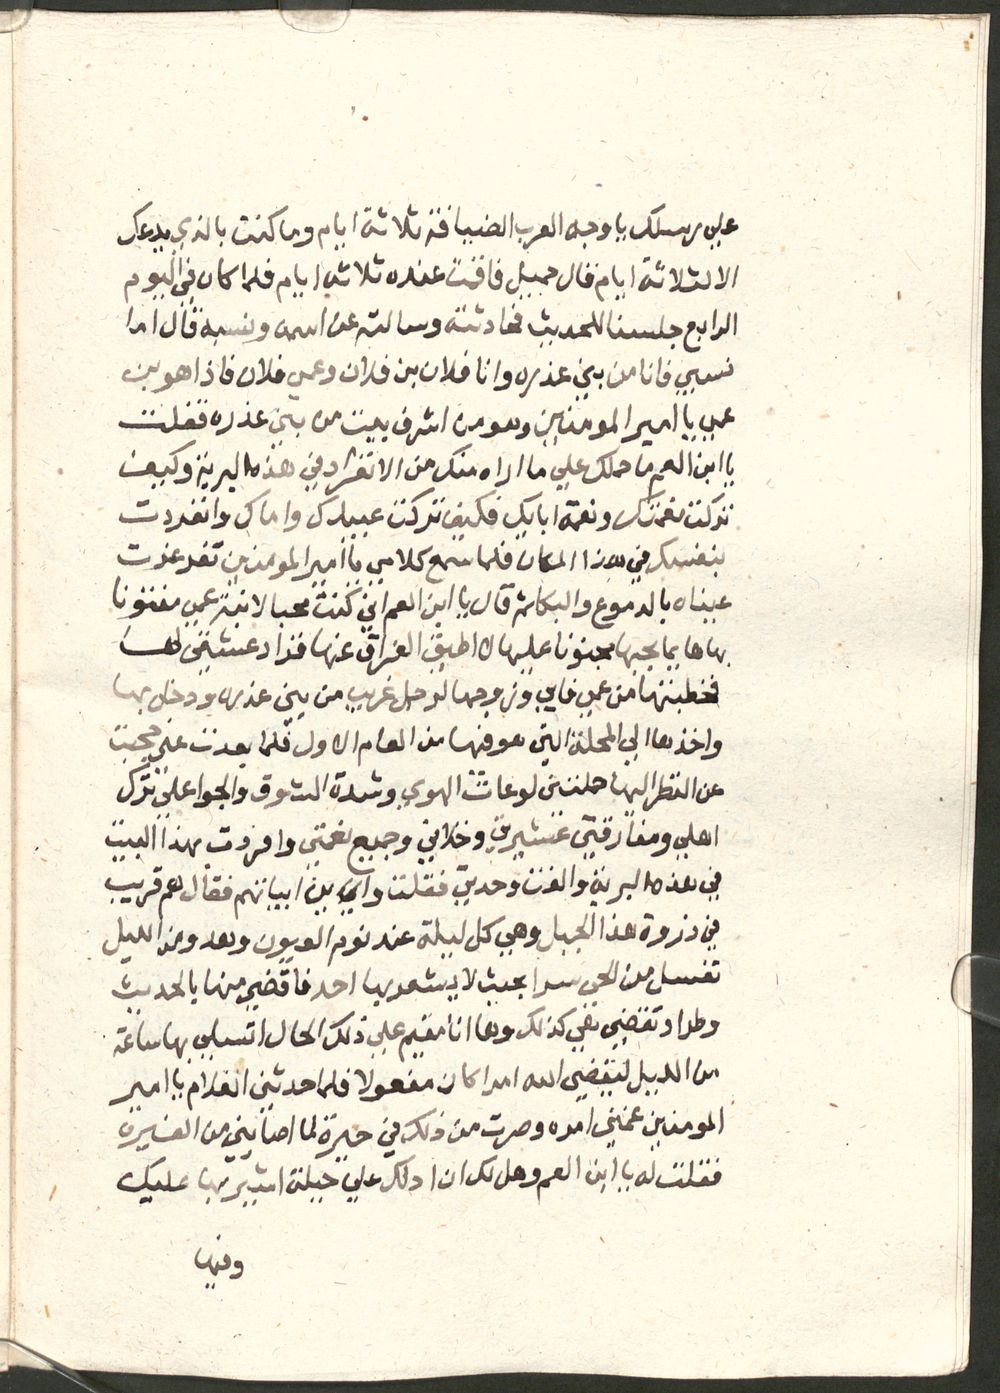 على رسلك يا وجه العرب الضيافة ثلاثة ايام وما كنت بالذي يدعك
الا لثلاثة ايام قال جميل فاقمت عنده ثلاثه ايام فلما كان في اليوم
الرابع جلسنا للحديث فحادثته وسالته عن اسمه ونسبه قال اما
نسبي فانا من بني عذره وانا فلان بن فلان وعمي فلان فاذا هو بن
عمي يا امير المومنين وهو من اشرف بيت من بني عذره فقلت
يا ابن العم ما حملك علي ما اراه منك من الانفراد في هذه البرية وكيف
تركت نعمتك ونعمة ابايك فكيف تركت عبيدك واماك وانفردت
بنفسك في هذا المكان فلما سمع كلامي يا امير المومنين تغرغرت
عيناه بالدموع والبكا ثم قال يا ابن العم اني كنت محبا لابنة عمي مفتونا
بها هايما بحبها مجنونا عليها لا اطيق الفراق عنها فزاد عشقي لها
فخطبتها من عمي فابي وزوجها لرجل غريب من بني عذره ودخل بها
واخذها الي المحلة التي هو فيها من العام الاول فلما بعدت عني وحجبت
عن النظر اليها حملتني لوعات الهوي وشدة الشوق والجوا علي ترك
اهلي ومفارقتي عشيرتي وخلاني وجميع نعمتي وانفردت بهذا البيت
في هذه البرية والفت وحدتي فقلت واين ابياتهم فقال هم قريب
في ذروة هذا الجبل وهي كل ليلة عند نوم العيون وهدو من الليل
تنسل من الحي سرا بحيث لا يشعر بها احد فاقضي منها بالحديث
وطرا وتقضي هي كذلك وها انا مقيم علي ذلك الحال اتسلي بها ساعة
من الليل ليقضي الله امرا كان مفعولا فلما حدثني الغلام يا امير
المومنين غمني امره وصرت من ذلك في حيرة لما اصابني من الغيره
فقلت له يا ابن العم وهل لك ان ادلك علي حيلة اشير بها عليك
وفيها